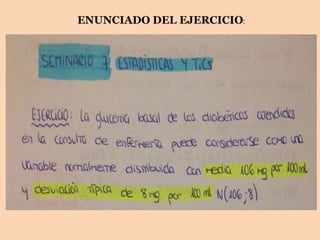 ENUNCIADO DEL EJERCICIO:
SEMINARIO 7, ESTADÍSTICAS Y TICs
EJERCICIO: La glucemia basal de los diabéticos atendidos
en la consulta de enfermería puede considerarse como una
variable normalmente distribuida con media 106 mg por 100 ml
y desviación típica de 8 mg por 100 ml N(106;8)